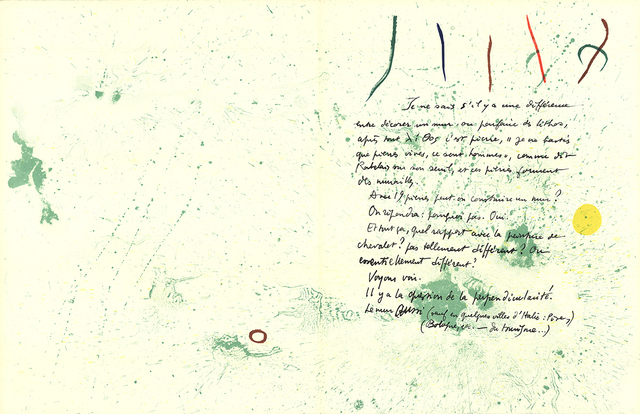 Je ne sais s'il y a une différence
entre décorer un mur ou parfaire des lithos,
après tout c'est pierre, « je ne bastis
que pierres vives, ce sont hommes », comme dit
Rabelais sur son seuil, et ces pierres forment
des murailles.
Avec 19 pierres peut-on construire un mur ?
On répondra : pourquoi pas. Oui.
Et tout ça, quel rapport avec la peinture de
chevalet ? pas tellement différent ? Ou
essentiellement différent ?
Voyons voir.
Il y a la question de la perpendicularité.
Le mur aussi (sauf en quelques villes d'Italie : Pise,)
(Bologne, — du tourisme...)